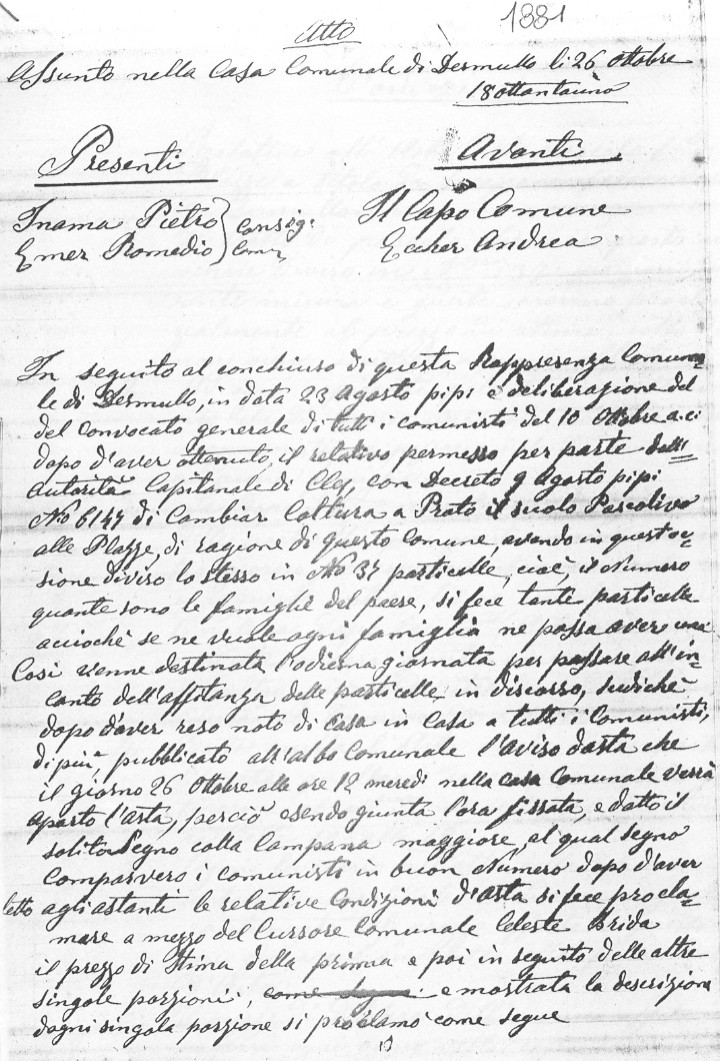 1881
Atto
Assunto nella Casa Comunale di Dermullo li 26 ottobre
18ottantauno
Presenti
Avanti
Inama Pietro
Emer Romedio
Consig.
Com.
Il Capo Comune
Eccher Andrea
In seguito al conchiuso di questa Rappresenza Comuna
le di Dermullo, in data 23 Agosto pipi e deliberazione del
del Convocato generale di tutti i comunisti del 10 Ottobre a.c.
dopo d'aver ottenuto, il relativo permesso per parte dell'
Autorità Capitanale di Cles, con Decreto 9 Agosto pipi
No 6147 di Cambiar Coltura a Prato il suolo Pascolivo
alle Plazze, di ragione di questo Comune, avendo in quest'oc=
sione diviso lo stesso in No 37 particelle, cioè, il Numero
quante sono le famiglie del paese, si fece tante particelle
acciochè se ne vuole ogni famiglia ne possa aver una
Così venne destinata l'odierna giornata per passare all'in=
canto dell'affitanza delle particelle in discorso, sudichè
dopo d'aver reso noto di Casa in Casa a tutti i Comunisti,
di più pubblicato all'albo Comunale l'aviso d'asta che
il giorno 26 Ottobre alle ore 12 meredi nella casa Comunale verrà
aparto l'asta, perciò esendo giunta l'ora fissata, e datto il
solito Segno colla Campana maggiore, al qual segno
comparvero i comunisti in buon Numero dopo d'aver
letto agli astanti le relative Condizioni d'asta si fece procla=
mare a mezzo del Cursore Comunale Celeste Brida
il prezzo di Stima della prima e poi in seguito delle altre
singole porzioni, come segue e mostrata la descrizione
d'ogni singola porzione si proclamò come segue